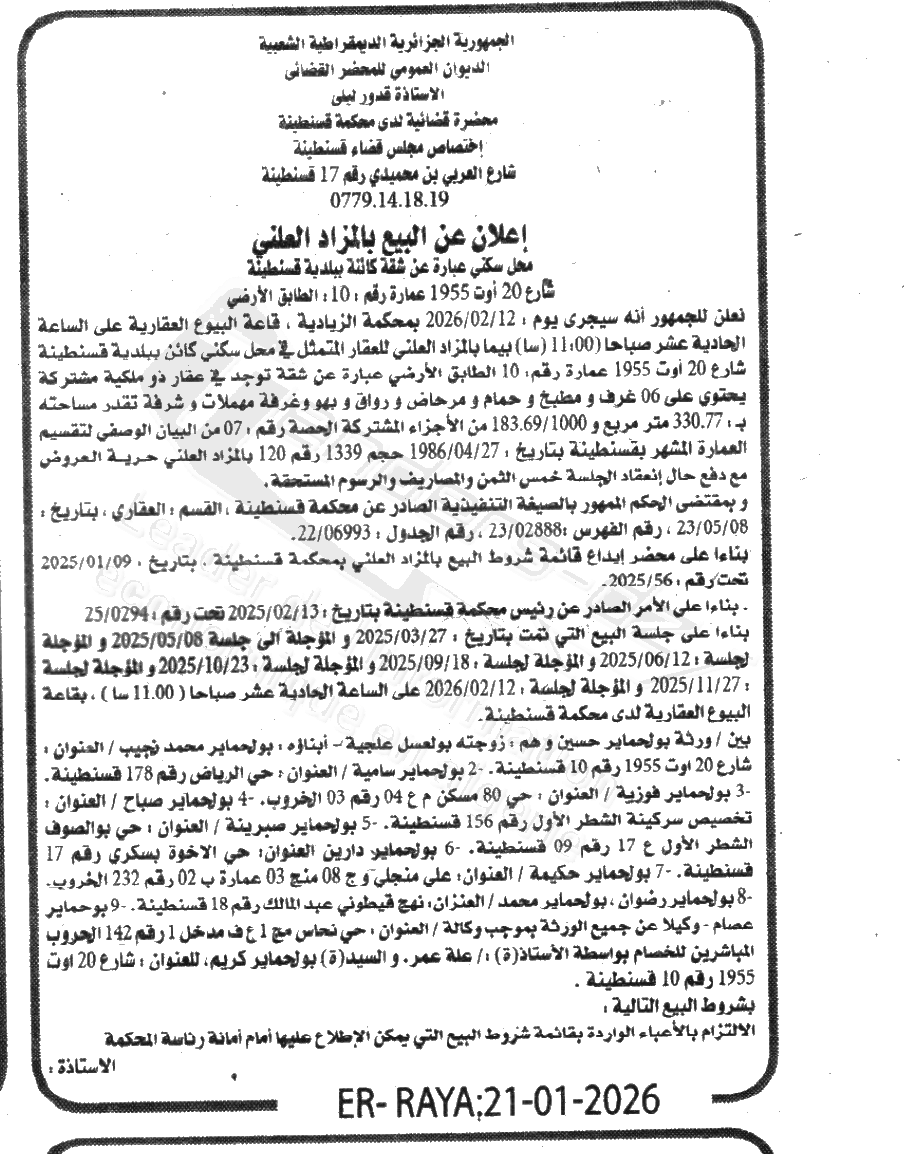 الجمهورية الجزائرية الديمقراطية الشعبية
الديوان العمومي للمحضر القضائي
الاستاذة قدور ليلى
محضرة قضائية لدى محكمة قسنطينة
إختصاص مجلس قضاء قسنطينة
شارع العربي بن محميدي رقم 17 قسنطينة
0779.14.18.19
إعلان عن البيع بالمزاد العلني
محل سكني عبارة عن شقة كائنة ببلدية قسنطينة
شارع 20 أوت 1955 عمارة رقم : 10: الطابق الأرضي
نعلن للجمهور أنه سيجرى يوم : 2026/02/12 بمحكمة الزيادية ، قاعة البيوع العقارية على الساعة
الحادية عشر صباحا (11:00 (سا) بيما بالمزاد العلني للعقار المتمثل في محل سكني كائن ببلدية قسنطينة
شارع 20 أوت 1955 عمارة رقم: 10 الطابق الأرضي عبارة عن شقة توجد في عقار ذو ملكية مشتركة
يحتوي على 06 غرف و مطبخ و حمام و مرحاض و رواق و بهو وغرفة مهملات و شرفة تقدر مساحته
بـ : 330.77 متر مربع و 183.69/1000 من الأجزاء المشتركة الحصة رقم : 07 من البيان الوصفي لتقسيم
العمارة المشهر بقسنطينة بتاريخ : 1986/04/27 حجم 1339 رقم 120 بالمزاد العلني حرية العروض
مع دفع حال إنعقاد الجلسة خمس الثمن والمصاريف والرسوم المستحقة.
و بمقتضى الحكم الممهور بالصيغة التنفيذية الصادر عن محكمة قسنطينة ، القسم : العقاري ، بتاريخ :
23/05/08 ، رقم الفهرس :23/02888 ، رقم الجدول : 22/06993.
بناءا على محضر إيداع قائمة شروط البيع بالمزاد العلني بمحكمة قسنطينة . بتاريخ : 2025/01/09
تحت رقم : 2025/56.
. بناءا على الأمر الصادر عن رئيس محكمة قسنطينة بتاريخ : 2025/02/13 تحت رقم : 25/0294
بناءا على جلسة البيع التي تمت بتاريخ : 2025/03/27 و المؤجلة الى جلسة 2025/05/08 و المؤجلة
لجلسة : 2025/06/12 و المؤجلة لجلسة : 2025/09/18 و المؤجلة لجلسة : 2025/10/23 و المؤجلة لجلسة
: 2025/11/27 و المؤجلة لجلسة : 2026/02/12 على الساعة الحادية عشر صباحا ( 11.00 سا ) ، بقاعة
البيوع العقارية لدى محكمة قسنطينة.
بين / ورثة بولحماير حسين و هم : زوجته بولعسل علجية – أبناؤه : بولحماير محمد نجيب / العنوان :
شارع 20 اوت 1955 رقم 10 قسنطينة. -2 بولحماير سامية / العنوان : حي الرياض رقم 178 قسنطينة.
-3 بولحماير فوزية / العنوان : حي 80 مسكن م ع 04 رقم 03 الخروب. -4 بولحماير صباح / العنوان :
تخصيص سركينة الشطر الأول رقم 156 قسنطينة. -5 بولحماير صبرينة / العنوان : حي بوالصوف
الشطر الأول ع 17 رقم 09 قسنطينة. -6 بولحماير دارين العنوان: حي الاخوة بسكري رقم 17
قسنطينة. -7 بولحماير حكيمة / العنوان: علي منجلي و ج 08 منج 03 عمارة ب 02 رقم 232 الخروب.
-8 بولحماير رضوان ، بولحماير محمد / العنزان: نهج قيطوني عبد المالك رقم 18 قسنطينة. -9 بوحماير
عصام - وكيلا عن جميع الورثة بموجب وكالة / العنوان : حي نحاس مج 1 ع ف مدخل 1 رقم 142 الحروب
المباشرين للخصام بواسطة الأستاذ(ة) :/ علة عمر. و السيد(ة) بولحماير كريم، للعنوان : شارع 20 اوت
1955 رقم 10 قسنطينة .
بشروط البيع التالية :
الالتزام بالأعباء الواردة بقائمة شروط البيع التي يمكن الإطلاع عليها أمام أمانة رئاسة المحكمة
الاستاذة :
ER- RAYA;21-01-2026